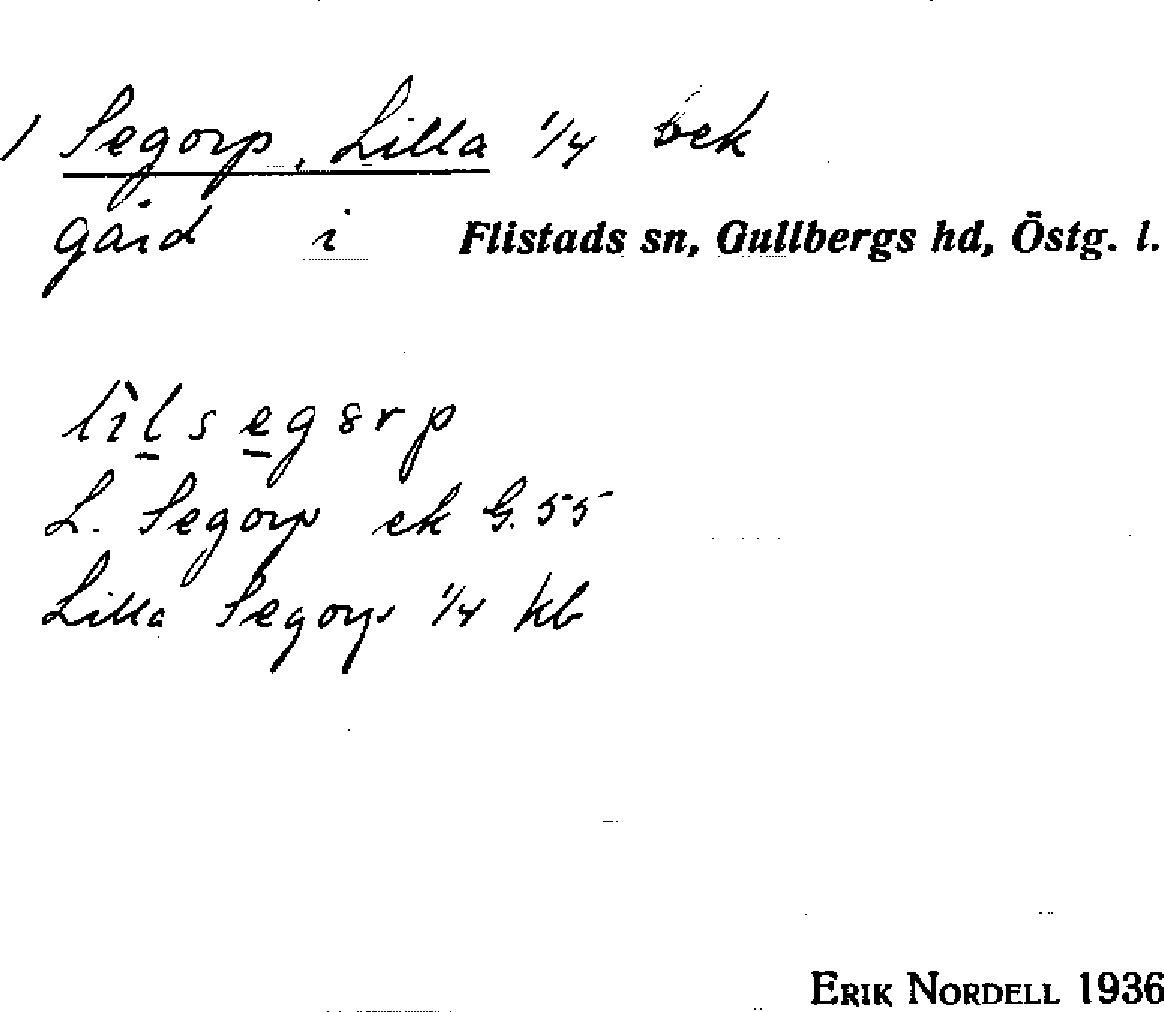 1 Segorp, Lilla 1/4 öek
gård i Flistads sn, Gullbergs hd, Östg. l.
lìlsegørp
L. Segorp ek G. 55
Lilla Segorp 1/4 kb
ERIK NORDELL 1936